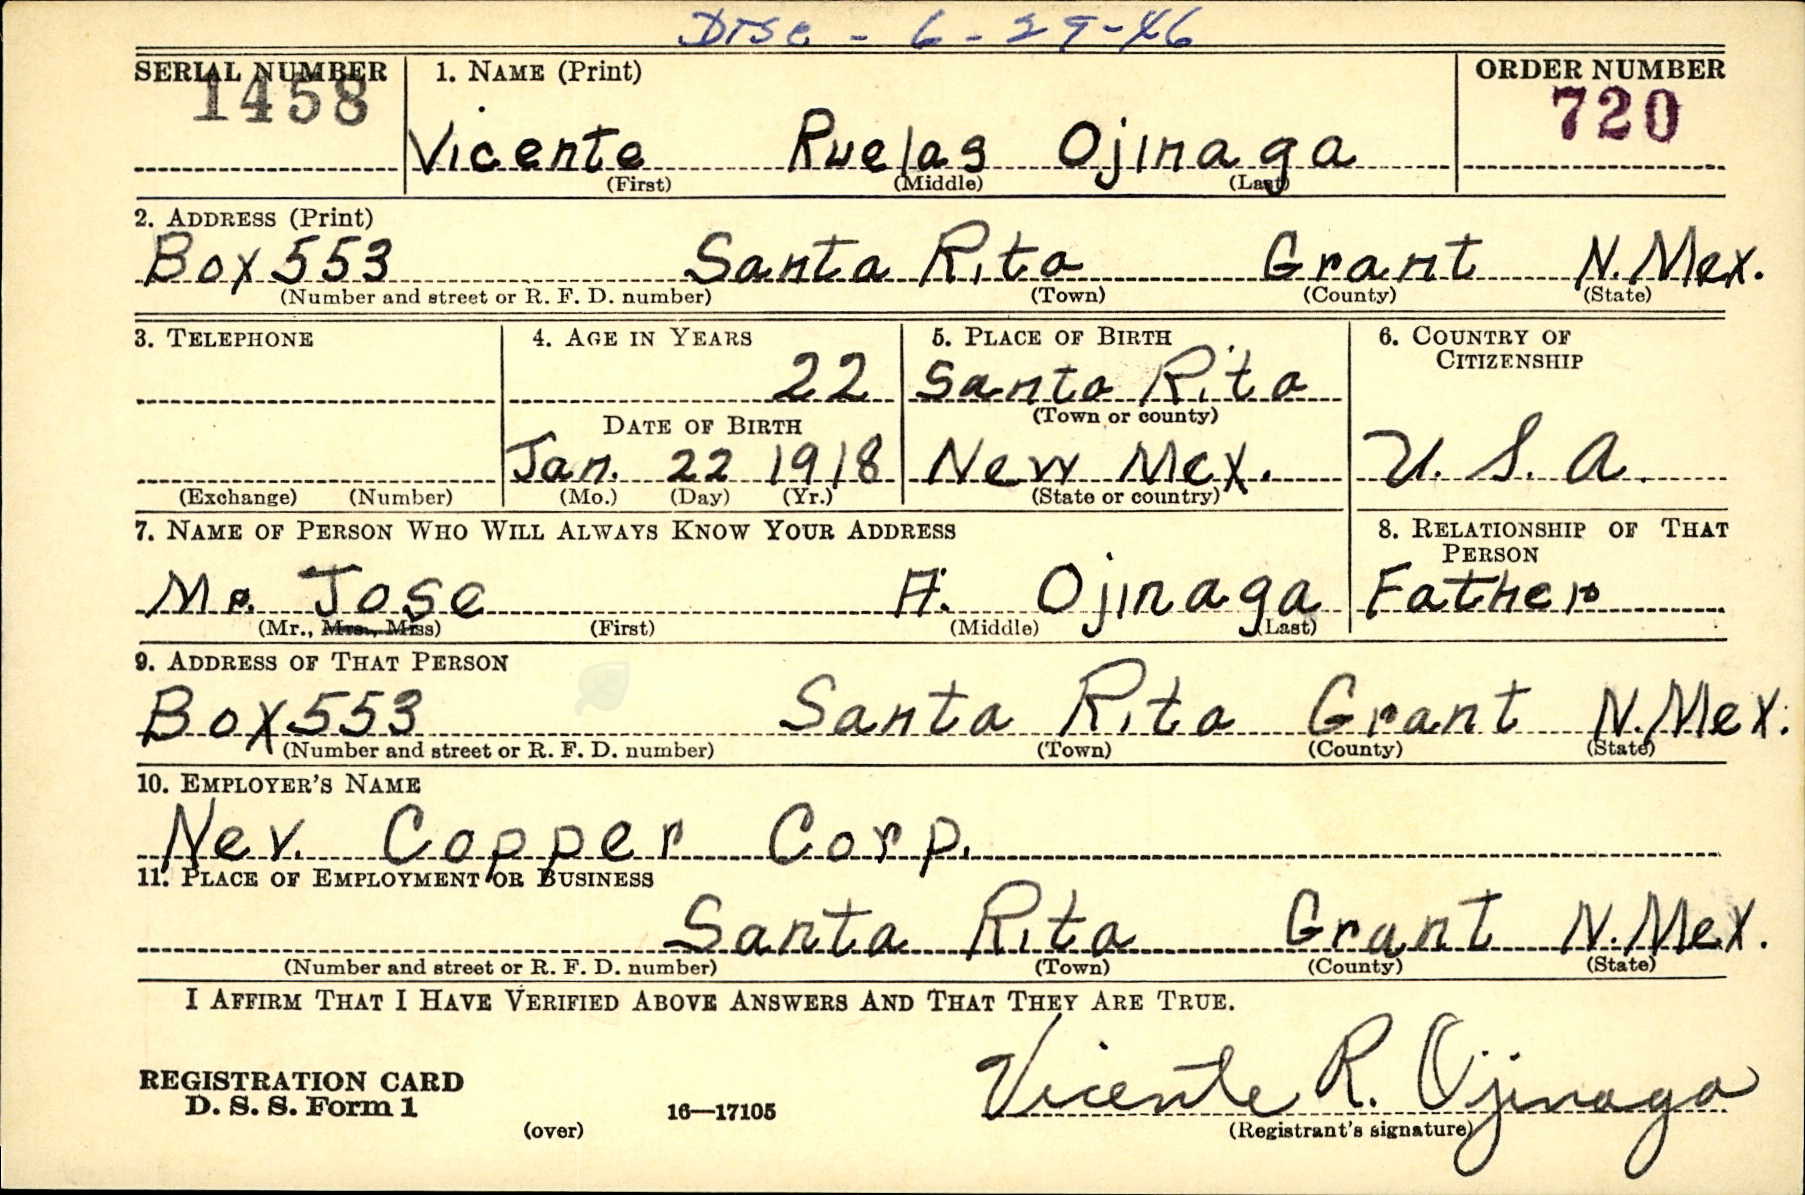 Disc - 6-29-46
SERIAL NUMBER 1. NAME (Print) ORDER NUMBER
1458 720
Vicente Ruelas Ojinaga
(First) (Middle) (Last)
2. ADDRESS (Print)
Box 553 Santa Rita Grant N. Mex.
(Number and street or R. F. D. number) (Town) (County) (State)
3. TELEPHONE 4. AGE IN YEARS 5. PLACE OF BIRTH 6. COUNTRY OF CITIZENSHIP
22 Santa Rita
DATE OF BIRTH (Town or county)
Jan. 22 1918 New Mex. U. S. A.
(Exchange) (Number) (Mo.) (Day) (Yr.) (State or country)
7. NAME OF PERSON WHO WILL ALWAYS KNOW YOUR ADDRESS 8. RELATIONSHIP OF THAT PERSON
Mr. Jose A. Ojinaga Father
(Mr., Mrs., Miss) (First) (Middle) (Last)
9. ADDRESS OF THAT PERSON
Box 553 Santa Rita Grant N. Mex.
(Number and street or R. F. D. number) (Town) (County) (State)
10. EMPLOYER'S NAME
Nev. Copper Corp.
11. PLACE OF EMPLOYMENT OR BUSINESS
Santa Rita Grant N. Mex.
(Number and street or R. F. D. number) (Town) (County) (State)
I AFFIRM THAT I HAVE VERIFIED ABOVE ANSWERS AND THAT THEY ARE TRUE.
Vicente R. Ojinaga
REGISTRATION CARD
D. S. S. Form 1 16—17105
(over) (Registrant's signature)